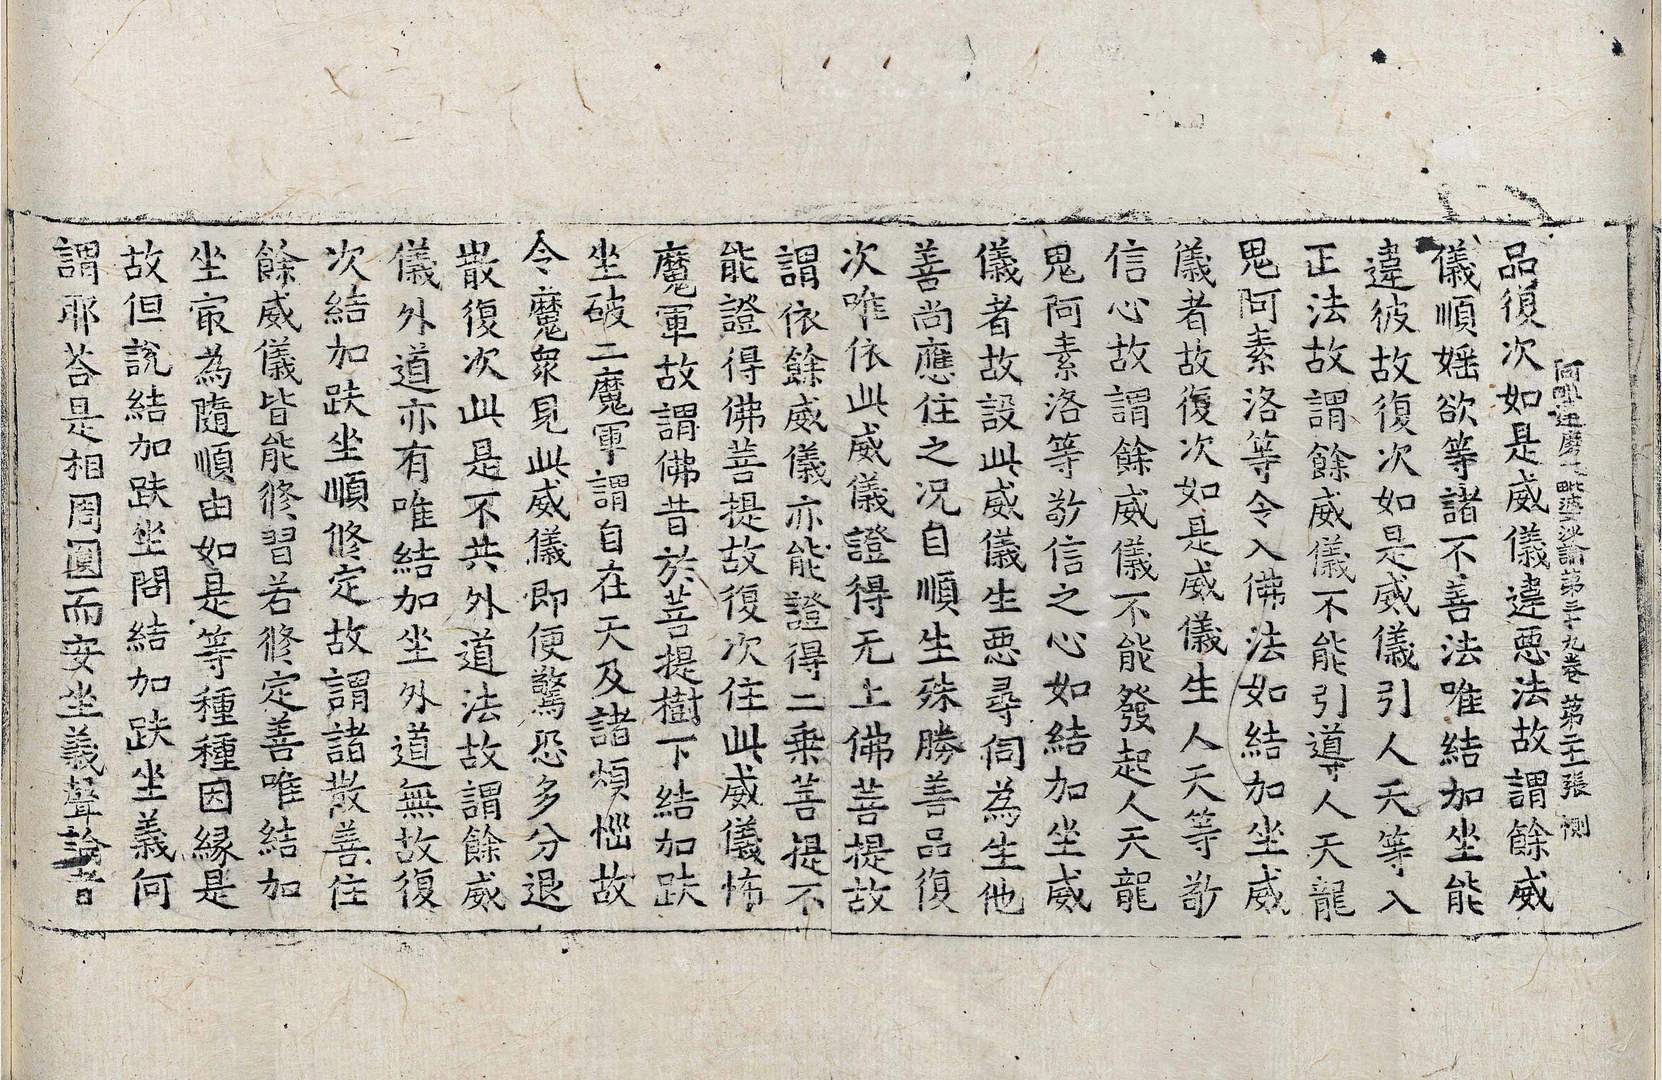 阿毗達磨大毗婆沙論第三十九卷 第二十二張 惻
品復次如是威儀違惡法故謂餘威
儀順婬欲等諸不善法唯結加坐能
違彼故復次如是威儀引人天等入
正法故謂餘威儀不能引導人天龍
鬼阿素洛等令入佛法如結加坐威
儀者故復次如是威儀生人天等敬
信心故謂餘威儀不能發起人天龍
鬼阿素洛等敬信之心如結加坐威
儀者故設此威儀生惡尋伺為生他
善尚應住之况自順生殊勝善品復
次唯依此威儀證得无上佛菩提故
謂依餘威儀亦能證得二乘菩提不
能證得佛菩提故復次住此威儀怖
魔軍故謂佛昔於菩提樹下結加趺
坐破二魔軍謂自在天及諸煩惱故
令魔衆見此威儀即便驚恐多分退
散復次此是不共外道法故謂餘威
儀外道亦有唯結加坐外道無故復
次結加趺坐順修定故謂諸散善住
餘威儀皆能修習若修定善唯結加
坐㝡為隨順由如是等種種因緣是
故但說結加趺坐問結加趺坐義何
謂耶荅是相周圓而安坐義聲論者